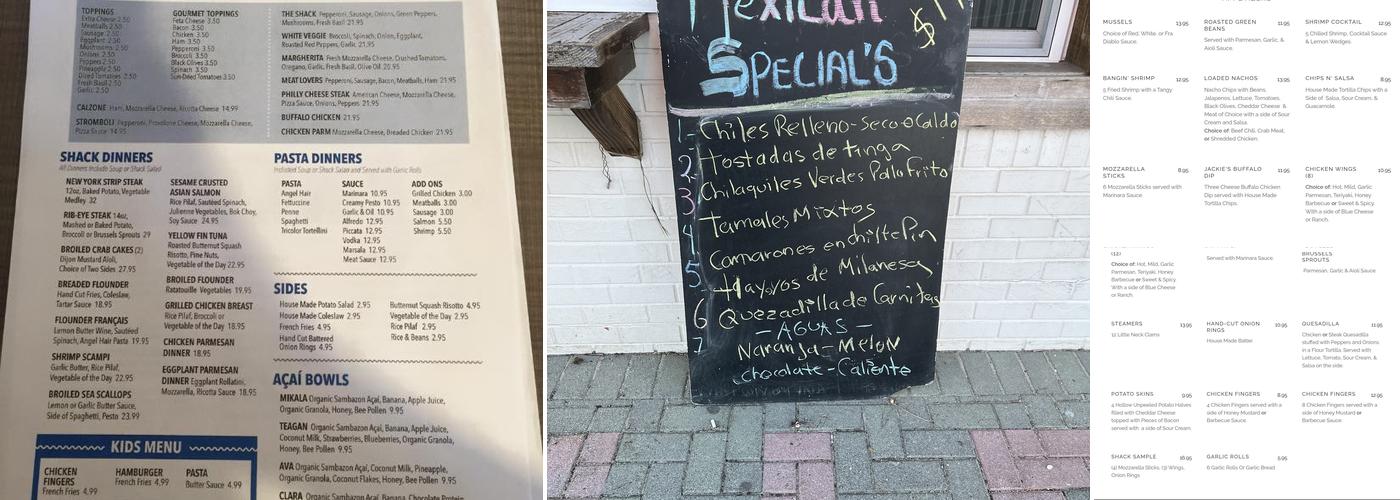 TOPPINGS
Extra Cheese 2.50
Meatballs 2.50
Sausage 2.50
Eggplant 2.50
Mushrooms 2.50
Onions 2.50
Peppers 2.50
Pineapple 2.50
Diced Tomatoes 2.50
Fresh Basil 2.50
Garlic 2.50
GOURMET TOPPINGS
Feta Cheese 3.50
Bacon 3.50
Chicken 3.50
Ham 3.50
Pepperoni 3.50
Broccoli 3.50
Black Olives 3.50
Spinach 3.50
Sun-Dried Tomatoes 3.50
CALZONE Ham, Mozzarella Cheese, Ricotta Cheese 14.99
STROMBOLI Pepperoni, Provolone Cheese, Mozzarella Cheese,
Pizza Sauce 14.95
THE SHACK Pepperoni, Sausage, Onions, Green Peppers,
Mushrooms, Fresh Basil 21.95
WHITE VEGGIE Broccoli, Spinach, Onion, Eggplant,
Roasted Red Peppers, Garlic 21.95
MARGHERITA Fresh Mozzarella Cheese, Crushed Tomatoes,
Oregano, Garlic, Fresh Basil, Olive Oil 20.95
MEAT LOVERS Pepperoni, Sausage, Bacon, Meatballs, Ham 21.95
PHILLY CHEESE STEAK American Cheese, Mozzarella Cheese,
Pizza Sauce, Onions, Peppers 21.95
BUFFALO CHICKEN 21.95
CHICKEN PARM Mozzarella Cheese, Breaded Chicken 21.95
SHACK DINNERS
All Dinners Include Soup or Shack Salad
NEW YORK STRIP STEAK
12oz, Baked Potato, Vegetable
Medley 32
RIB-EYE STEAK 14oz,
Mashed or Baked Potato,
Broccoli or Brussels Sprouts 29
BROILED CRAB CAKES (2)
Dijon Mustard Aioli,
Choice of Two Sides 27.95
BREADED FLOUNDER
Hand Cut Fries, Coleslaw,
Tartar Sauce 18.95
FLOUNDER FRANÇAIS
Lemon Butter Wine, Sautéed
Spinach, Angel Hair Pasta 19.95
SHRIMP SCAMPI
Garlic Butter, Rice Pilaf,
Vegetable of the Day 22.95
BROILED SEA SCALLOPS
Lemon or Garlic Butter Sauce,
Side of Spaghetti, Pesto 23.99
SESAME CRUSTED
ASIAN SALMON
Rice Pilaf, Sautéed Spinach,
Julienne Vegetables, Bok Choy,
Soy Sauce 24.95
YELLOW FIN TUNA
Roasted Butternut Squash
Risotto, Pine Nuts,
Vegetable of the Day 22.95
BROILED FLOUNDER
Ratatouille Vegetables 19.95
GRILLED CHICKEN BREAST
Rice Pilaf, Broccoli or
Vegetable of the Day 18.95
CHICKEN PARMESAN
DINNER 18.95
EGGPLANT PARMESAN
DINNER Eggplant Rollatini,
Mozzarella, Ricotta Sauce 18.95
KIDS MENU
CHICKEN
FINGERS
French Fries 4.99
HAMBURGER
French Fries 4.99
PASTA
Butter Sauce 4.99
PASTA DINNERS
Included Soup or Shack Salad and Served with Garlic Rolls
PASTA
Angel Hair
Fettuccine
Penne
Spaghetti
Tricolor Tortellini
SAUCE
Marinara 10.95
Creamy Pesto 10.95
Garlic & Oil 10.95
Alfredo 12.95
Piccata 12.95
Vodka 12.95
Marsala 12.95
Meat Sauce 12.95
ADD ONS
Grilled Chicken 3.00
Meatballs 3.00
Sausage 3.00
Salmon 5.50
Shrimp 5.50
SIDES
House Made Potato Salad 2.95
House Made Coleslaw 2.95
French Fries 4.95
Hand Cut Battered
Onion Rings 4.95
Butternut Squash Risotto 4.95
Vegetable of the Day 2.95
Rice Pilaf 2.95
Rice & Beans 2.95
AÇAÍ BOWLS
MIKALA Organic Sambazon Açaí, Banana, Apple Juice,
Organic Granola, Honey, Bee Pollen 9.95
TEAGAN Organic Sambazon Açaí, Banana, Apple Juice,
Coconut Milk, Strawberries, Blueberries, Organic Granola,
Honey, Bee Pollen 9.95
AVA Organic Sambazon Açaí, Coconut Milk, Pineapple,
Organic Granola, Coconut Flakes, Honey, Bee Pollen 9.95
CLARA Organic Sambazon Açaí, Banana, Chocolate Protein
Mexican
SPECIAL'S
1- Chiles Relleno-Seco o Caldo
2- Tostadas de tinga
3 Chilaquiles Verdes Pollo Frito
4 Tamales Mixtos
5 Camarones enchiltepin
6 Huayvos de Milanesa
7 Quezadilla de Carnitas
- AGUAS -
Naranja-Melon
chocolate-Caliente
MUSSELS 13.95
Choice of Red, White, or Fra
Diablo Sauce.
ROASTED GREEN
BEANS 11.95
Served with Parmesan, Garlic, &
Aioli Sauce.
SHRIMP COCKTAIL 12.95
5 Chilled Shrimp, Cocktail Sauce
& Lemon Wedges.
BANGIN' SHRIMP 12.95
5 Fried Shrimp with a Tangy
Chili Sauce.
LOADED NACHOS 13.95
Nacho Chips with Beans,
Jalapenos, Lettuce, Tomatoes,
Black Olives, Cheddar Cheese &
Meat of Choice with a side of Sour
Cream and Salsa.
Choice of: Beef Chili, Crab Meat,
or Shredded Chicken.
CHIPS N' SALSA 8.95
House Made Tortilla Chips with a
Side of Salsa, Sour Cream, &
Guacamole.
MOZZARELLA
STICKS 8.95
6 Mozzarella Sticks served with
Marinara Sauce
JACKIE'S BUFFALO
DIP 11.95
Three Cheese Buffalo Chicken
Dip served with House Made
Tortilla Chips.
CHICKEN WINGS
(8) 10.95
Choice of: Hot, Mild, Garlic
Parmesan, Teriyaki, Honey
Barbecue or Sweet & Spicy.
With a side of Blue Cheese
or Ranch.
(12)
Choice of: Hot, Mild, Garlic
Parmesan, Teriyaki, Honey
Barbecue or Sweet & Spicy.
With a side of Blue Cheese
or Ranch.
Served with Marinara Sauce.
BRUSSELS
SPROUTS
Parmesan, Garlic & Aioli Sauce
STEAMERS 13.95
12 Little Neck Clams
HAND-CUT ONION
RINGS 10.95
House Made Batter.
QUESADILLA 11.95
Chicken or Steak Quesadilla
stuffed with Peppers and Onions
in a Flour Tortilla. Served with
Lettuce, Tomato, Sour Cream, &
Salsa on the side.
POTATO SKINS 9.95
4 Hollow Unpeeled Potato Halves
filled with Cheddar Cheese
topped with Pieces of Bacon
served with a side of Sour Cream
CHICKEN FINGERS 8.95
4 Chicken Fingers served with a
side of Honey Mustard or
Barbecue Sauce
CHICKEN FINGERS 12.95
8 Chicken Fingers served with a
side of Honey Mustard or
Barbecue Sauce.
SHACK SAMPLE 16.95
(4) Mozzarella Sticks, (3) Wings,
Onion Rings
GARLIC ROLLS 5.95
6 Garlic Rolls Or Garlic Bread